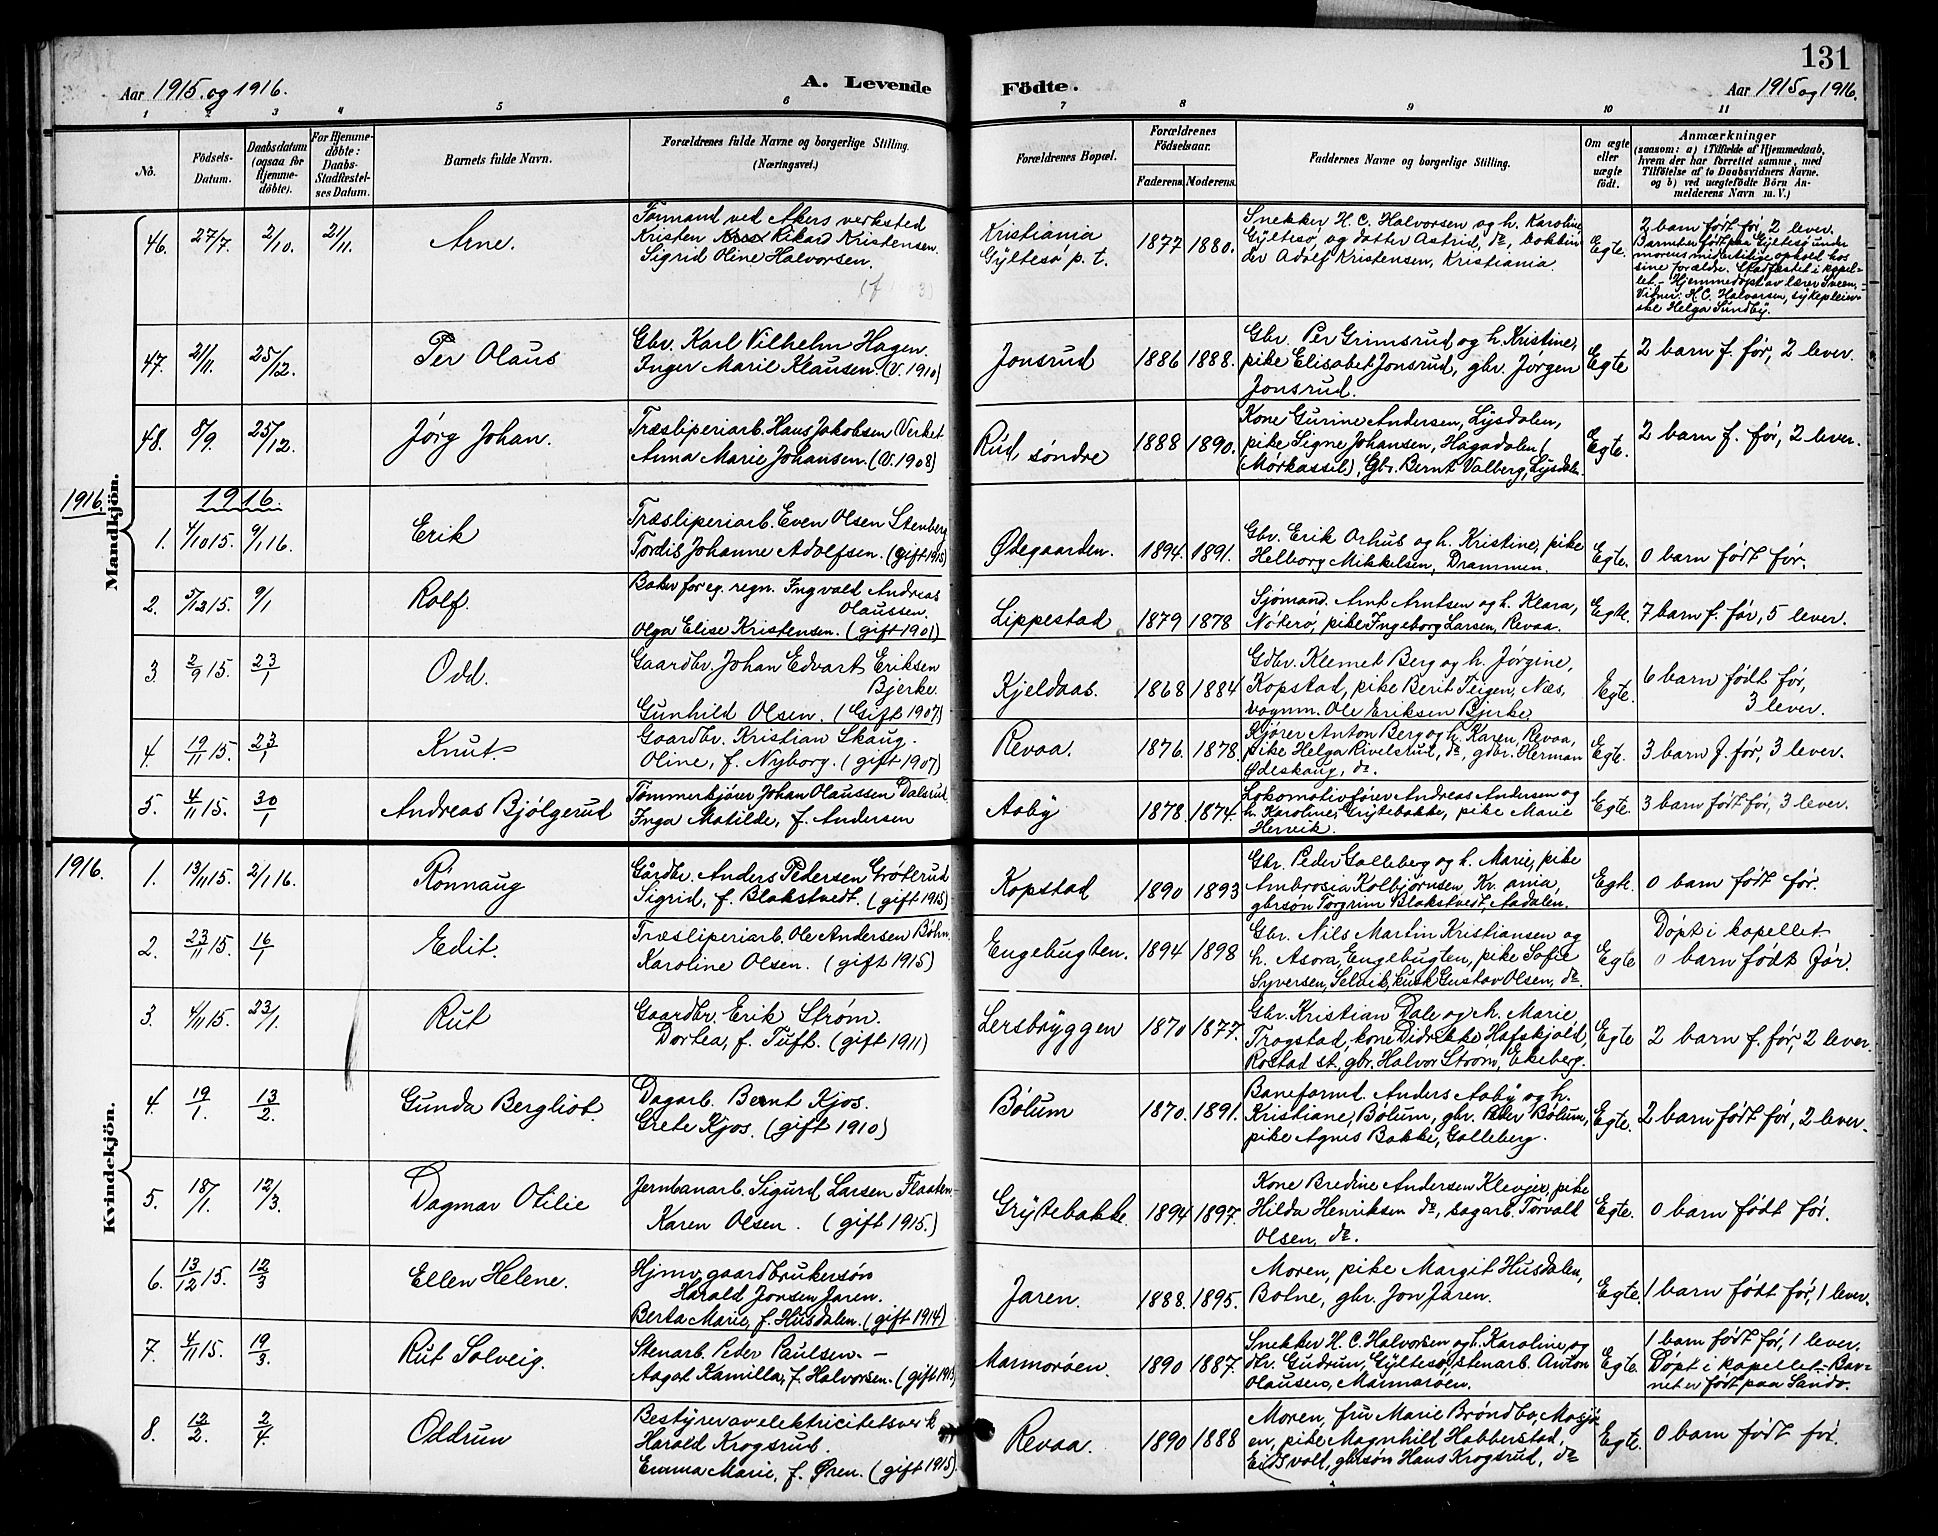 131
Aar 1915 og 1916.
A. Levende Födte.
Aar 1915 og 1916.
1 2 3 4 5 6 7 8 9 10 11
No.
Födsels-
Datum.
Daabsdatum
(ogsaa for
Hjemme-
döbte).
For Hjemme-
döbte:
Daabs-
Stadfæstel-
ses Datum.
Barnets fulde Navn.
Forældrenes fulde Navne og borgerlige Stilling.
(Næringsvei.)
Forældrenes Bopæl.
Forældrenes
Födselsaar.
Faderens.
Moderens.
Faddernes Navne og borgerlige Stilling.
Om ægte
eller
uægte
födt.
Anmærkninger
(saasom: a) i Tilfælde af Hjemmedaab,
hvem der har forrettet samme, med
Tilföielse af to Daabsvidners Navne.
og b) ved uægtefödte Börn An-
melderens Navn m. V.)
Mandkjön.
46. 27/7. 2/10. 21/11. Arne.
Formand ved Akers verksted
Kristen Rikard Kristensen
Sigrid Oline Halvorsen.
Kristiania
Gyltesø p. t.
1877 1880.
Snekker H. C. Halvorsen og h. Karoline,
Gyltesø, og datter Astrid, do, bokbin
der Adolf Kristensen, Kristiania.
Egte.
2 barn født før, 2 lever.
Barnet er født paa Gyltesø under
morens midlertidige ophold hos
sine forældre. Stadfæstet i kapel-
let. - Hjemmedøpt av lærer Sveen. -
Vidner: H. C. Halvorsen, sykepleier-
ske Helga Sundby.
47. 21/11. 25/12. Per Olaus
Gbr. Karl Vilhelm Hagen.
Inger Marie Klausen. (V. 1910)
Jonsrud
1886 1888.
Gbr. Per Grimsrud og h. Kristine,
pike Elisabet Jonsrud, gbr. Jørgen
Jonsrud.
Egte
2 barn f. før, 2 lever.
48. 8/9. 25/12. Jørg Johan.
Træsliperiarb. Hans Jakobsen Verket
Anna Marie Johansen. (V. 1908)
Rud søndre
1888 1890.
Kone Gurine Andersen, Lysdalen,
pike Signe Johansen, Hagadalen
(Mørkassel), Gbr. Bernt Valberg, Lysdalen.
Egte.
2 barn f. før, 2 lever.
1916. 1916.
1. 4/10 15. 9/1 16. Erik
Træsliperiarb. Even Olsen Stenberg
Tordis Johanne Adolfsen. (gift 1915)
Ødegaarden.
1894. 1891.
Gbr. Erik Orhus og h. Kristine, pike
Helborg Mikkelsen, Drammen.
Egte.
0 barn født før.
2. 5/12 15. 9/1 Rolf.
Baker for eg. regn. Ingvald Andreas
Olaussen.
Olga Elise Kristensen. (gift 1901)
Lippestad
1879 1878
Sjømand. Arnt Arntsen og h. Klara,
Nøterø, pike Ingeborg Larsen, Revaa.
Egte.
7 barn f. før, 5 lever.
3. 2/9 15. 23/1 Odd.
Gaardbr. Johan Edvart Eriksen
Bjerke.
Gunhild Olsen. (Gift 1907)
Kjeldaas.
1868 1884
Gdbr. Klemet Berg og h. Jørgine,
Kopstad, pike Berit Teigen, Næs,
vognm. Ole Eriksen Bjerke
Egte.
6 barn født før,
3 lever.
4. 19/11 15. 23/1 Knut
Gaardbr. Kristian Skaug.
Oline, f. Nyborg. (gift 1907)
Revaa.
1876. 1878.
Kjører Anton Berg og h. Karen, Revaa,
pike Helga Rivelsrud, do, gdbr. Herman
Ødeskaug, do.
Egte.
3 barn f. før, 3 lever.
5. 4/11 15. 30/1 Andreas Bjølgerud
Tømmerkjører Johan Olaussen Dalsrud
Inga Matilde, f. Andersen
Aaby
1878. 1874.
Lokomotivfører Andreas Andersen og
h. Karoline, Grytebakke, pike Marie
Hervik.
Egte.
3 barn født før, 3 lever.
1916.
Kvindekjön.
1. 13/11 15. 2/1 16. Rønnaug
Gårdbr. Anders Pedersen Grøterud
Sigrid, f. Blakstvedt. (gift 1915)
Kopstad
1890 1893
Gbr. Peder Galleberg og h. Marie, pike
Ambrosia Kolbjørnsen, Kr. ania,
gbrsøn Torgrim Blakstvedt, Aadalen.
Egte.
0 barn født før.
2. 23/11 15. 16/1 Edit.
Træsliperiarb. Ole Andersen Bøhn
Karoline Olsen. (gift 1915)
Engebugten.
1894 1898
Gbr. Nils Martin Kristiansen og
h. Asora, Engebugten, pike Sofie
Syversen, Selvik, kusk Gustav Olsen, do.
Egte
Døpt i kapellet
0 barn født før.
3. 4/11 15. 23/1. Rut
Gaardbr. Erik Strøm.
Dortea, f. Tuft. (gift 1911)
Lersbryggen
1870 1877.
Gbr. Kristian Dale og h. Marie
Trogstad, kone Didrikke Hafskjold,
Rostad st., gbr. Halvor Strøm, Ekeberg.
Egte
2 barn f. før, 2 lever.
4. 19/1. 13/2. Gunda Bergliot.
Dagarb. Bernt Kjos.
Grete Kjos. (gift 1910)
Bølum
1870. 1891.
Baneformd. Anders Aaby og h.
Kristiane, Bølum, gbr. Peder Bølum,
pike Agnes Bakke, Galleberg.
Egte.
2 barn født før, 2 lever.
5. 18/1. 12/3. Dagmar Otilie
Jernbanarb. Sigurd Larsen Flaaten
Karen Olsen. (gift 1915)
Grytebakke
1894 1897.
Kone Bredine Andersen Klevjer, pike
Hilda Henriksen do, sagarb. Torvald
Olsen, do.
Egte.
0 barn født før.
6. 13/12 15. 12/3 Ellen Helene.
Hjmv. gaardbrukersøn
Harald Jonsen Jaren.
Berta Marie, f. Husdalen. (gift 1914)
Jaren.
1888. 1895.
Moren, pike Margit Husdalen,
Botne, gbr. Jon Jaren.
Egte.
1 barn født før, 1 lever.
7. 4/11 15. 19/3. Rut Solveig.
Stenarb. Peder Paulsen. -
Aagot Kamilla, f. Halvorsen. (gift 1913)
Marmorøen.
1890 1887.
Snekker H. C. Halvorsen og h. Karoline, og
dtr. Gudrun, Gyltesø, stenarb. Anton
Olausen, Marmorøen.
Egte.
1 barn født før, 1 lever.
Døpt i kapellet. - Bar-
net er født paa Sandø.
8. 12/2. 2/4. Oddrun
Bestyrer av elektricitetsverk
Harald Krogsrud.
Emma Marie, f. Øren. (gift 1915).
Revaa.
1890 1888
Moren, fru Marie Brøndbo, Mosjø-
en, pike Magnhild Habberstad,
Eidsvold, gbrsøn Hans Krogsrud, do
Egte.
0 barn født før.